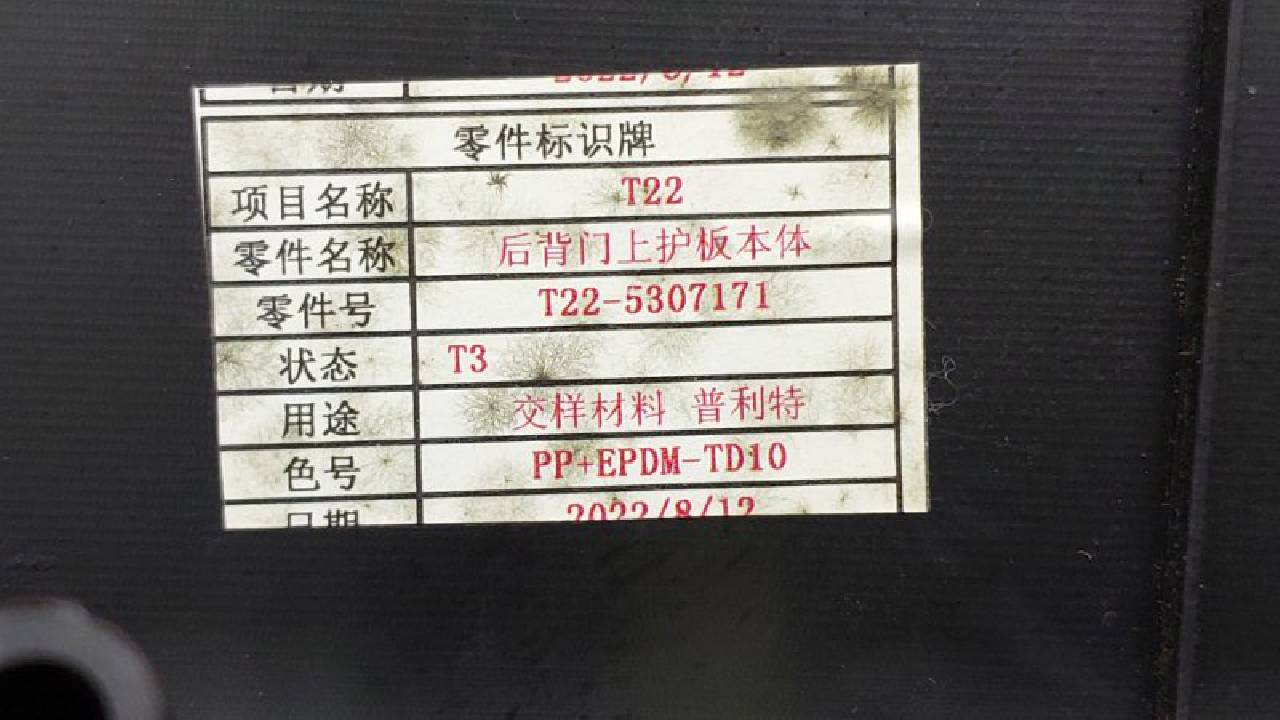 日期 2022/8/12
零件标识牌
项目名称 T22
零件名称 后背门上护板本体
零件号 T22-5307171
状态 T3
用途 交样材料 普利特
色号 PP+EPDM-TD10
日期 2022/8/12